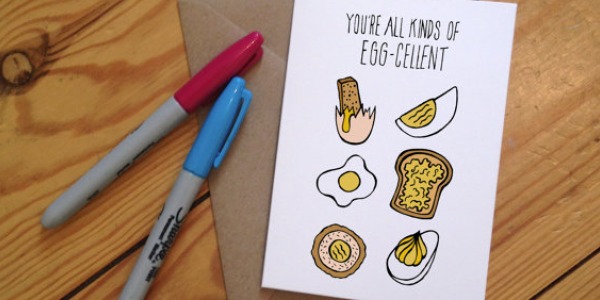 YOU'RE ALL KINDS OF
EGG-CELLENT
Sharpie